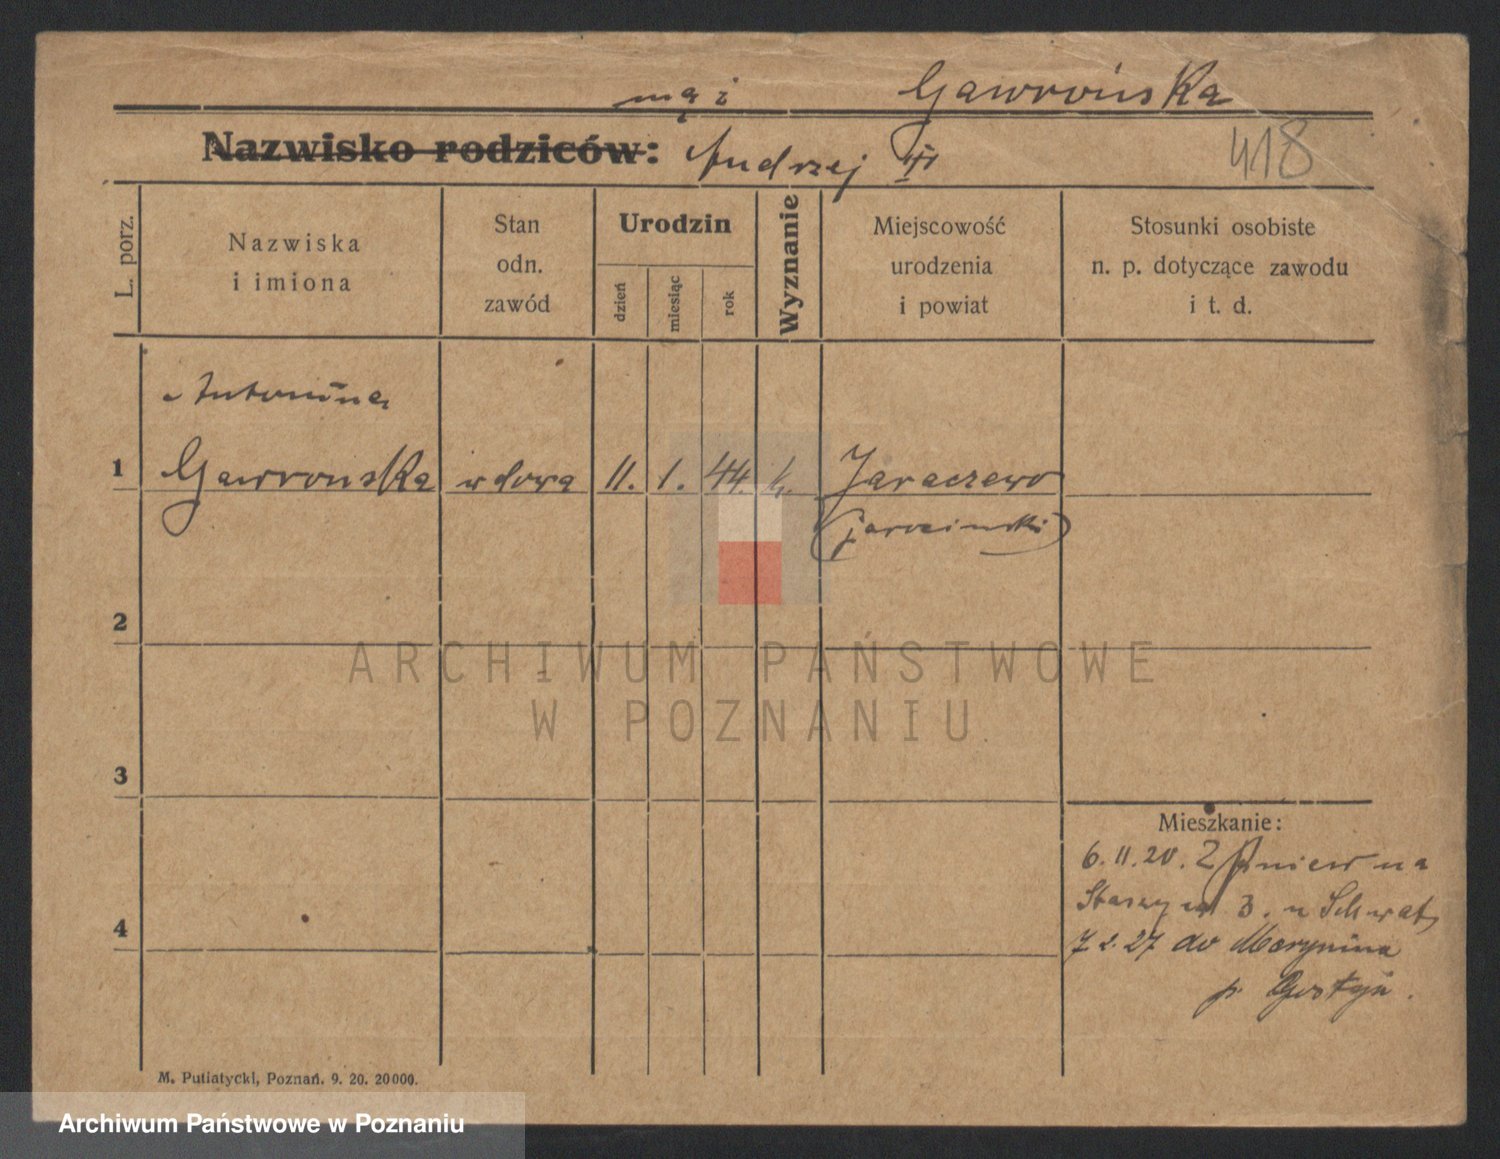 mąż Gawrońska
Nazwisko rodziców: Andrzej
418
L. porz.
Nazwiska
i imiona
Stan
odn.
zawód
Urodzin
dzień
miesiąc
rok
Wyznanie
Miejscowość
urodzenia
i powiat
Stosunki osobiste
n. p. dotyczące zawodu
i t. d.
Antonina
1 Gawronska wdowa 11. 1. 44. k. Jaraczewo
(jarocinski)
2
ARCHIWUM PAŃSTWOWE
W POZNANIU
3
Mieszkanie:
6. 11. 20. Z Pniew na
3. u
4
7 2. 27 do Marynina
p. Gostyń.
M. Putiatycki, Poznań. 9. 20. 20000.
Archiwum Państwowe w Poznaniu